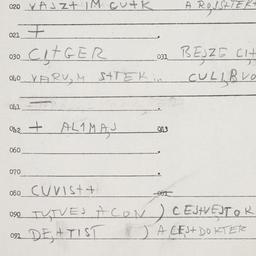 020 VAJZT IM CU+K A ROJS+TEK+
021 +
030 CI,+GER 031 BEJZE CI+
040 VARU,M S+TEK... CULI,BVO
041 —
042 + ALIMAJ 043
060
070
080 CUVIS++ 081
090 TU,TVEJ ACON ) CEJ+VEJTOK
091 DE,+TIST ) A CEJ+DOKTER